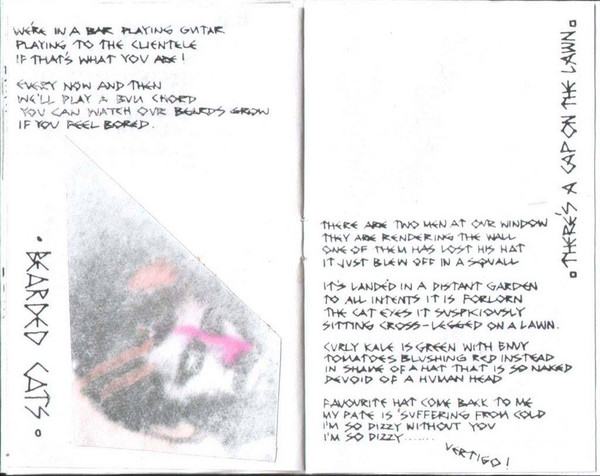 WE'RE IN A BAR PLAYING GUITAR
PLAYING TO THE CLIENTELE
IF THAT'S WHAT YOU ARE!
EVERY NOW AND THEN
WE'LL PLAY A BUM CHORD
YOU CAN WATCH OUR BEARDS GROW
IF YOU FEEL BORED.
• BEARDED CATS •
THERE'S A CAP ON THE LAWN
THERE ARE TWO MEN AT OUR WINDOW
THEY ARE RENDERING THE WALL
ONE OF THEM HAS LOST HIS HAT
IT JUST BLEW OFF IN A SQUALL
IT'S LANDED IN A DISTANT GARDEN
TO ALL INTENTS IT IS FORLORN
THE CAT EYES IT SUSPICIOUSLY
SITTING CROSS-LEGGED ON A LAWN.
CURLY KALE IS GREEN WITH ENVY
TOMATOES BLUSHING RED INSTEAD
IN SHAME OF A HAT THAT IS SO NAKED
DEVOID OF A HUMAN HEAD
FAVOURITE HAT COME BACK TO ME
MY PATE IS SUFFERING FROM COLD
I'M SO DIZZY WITHOUT YOU
I'M SO DIZZY.......
VERTIGO!